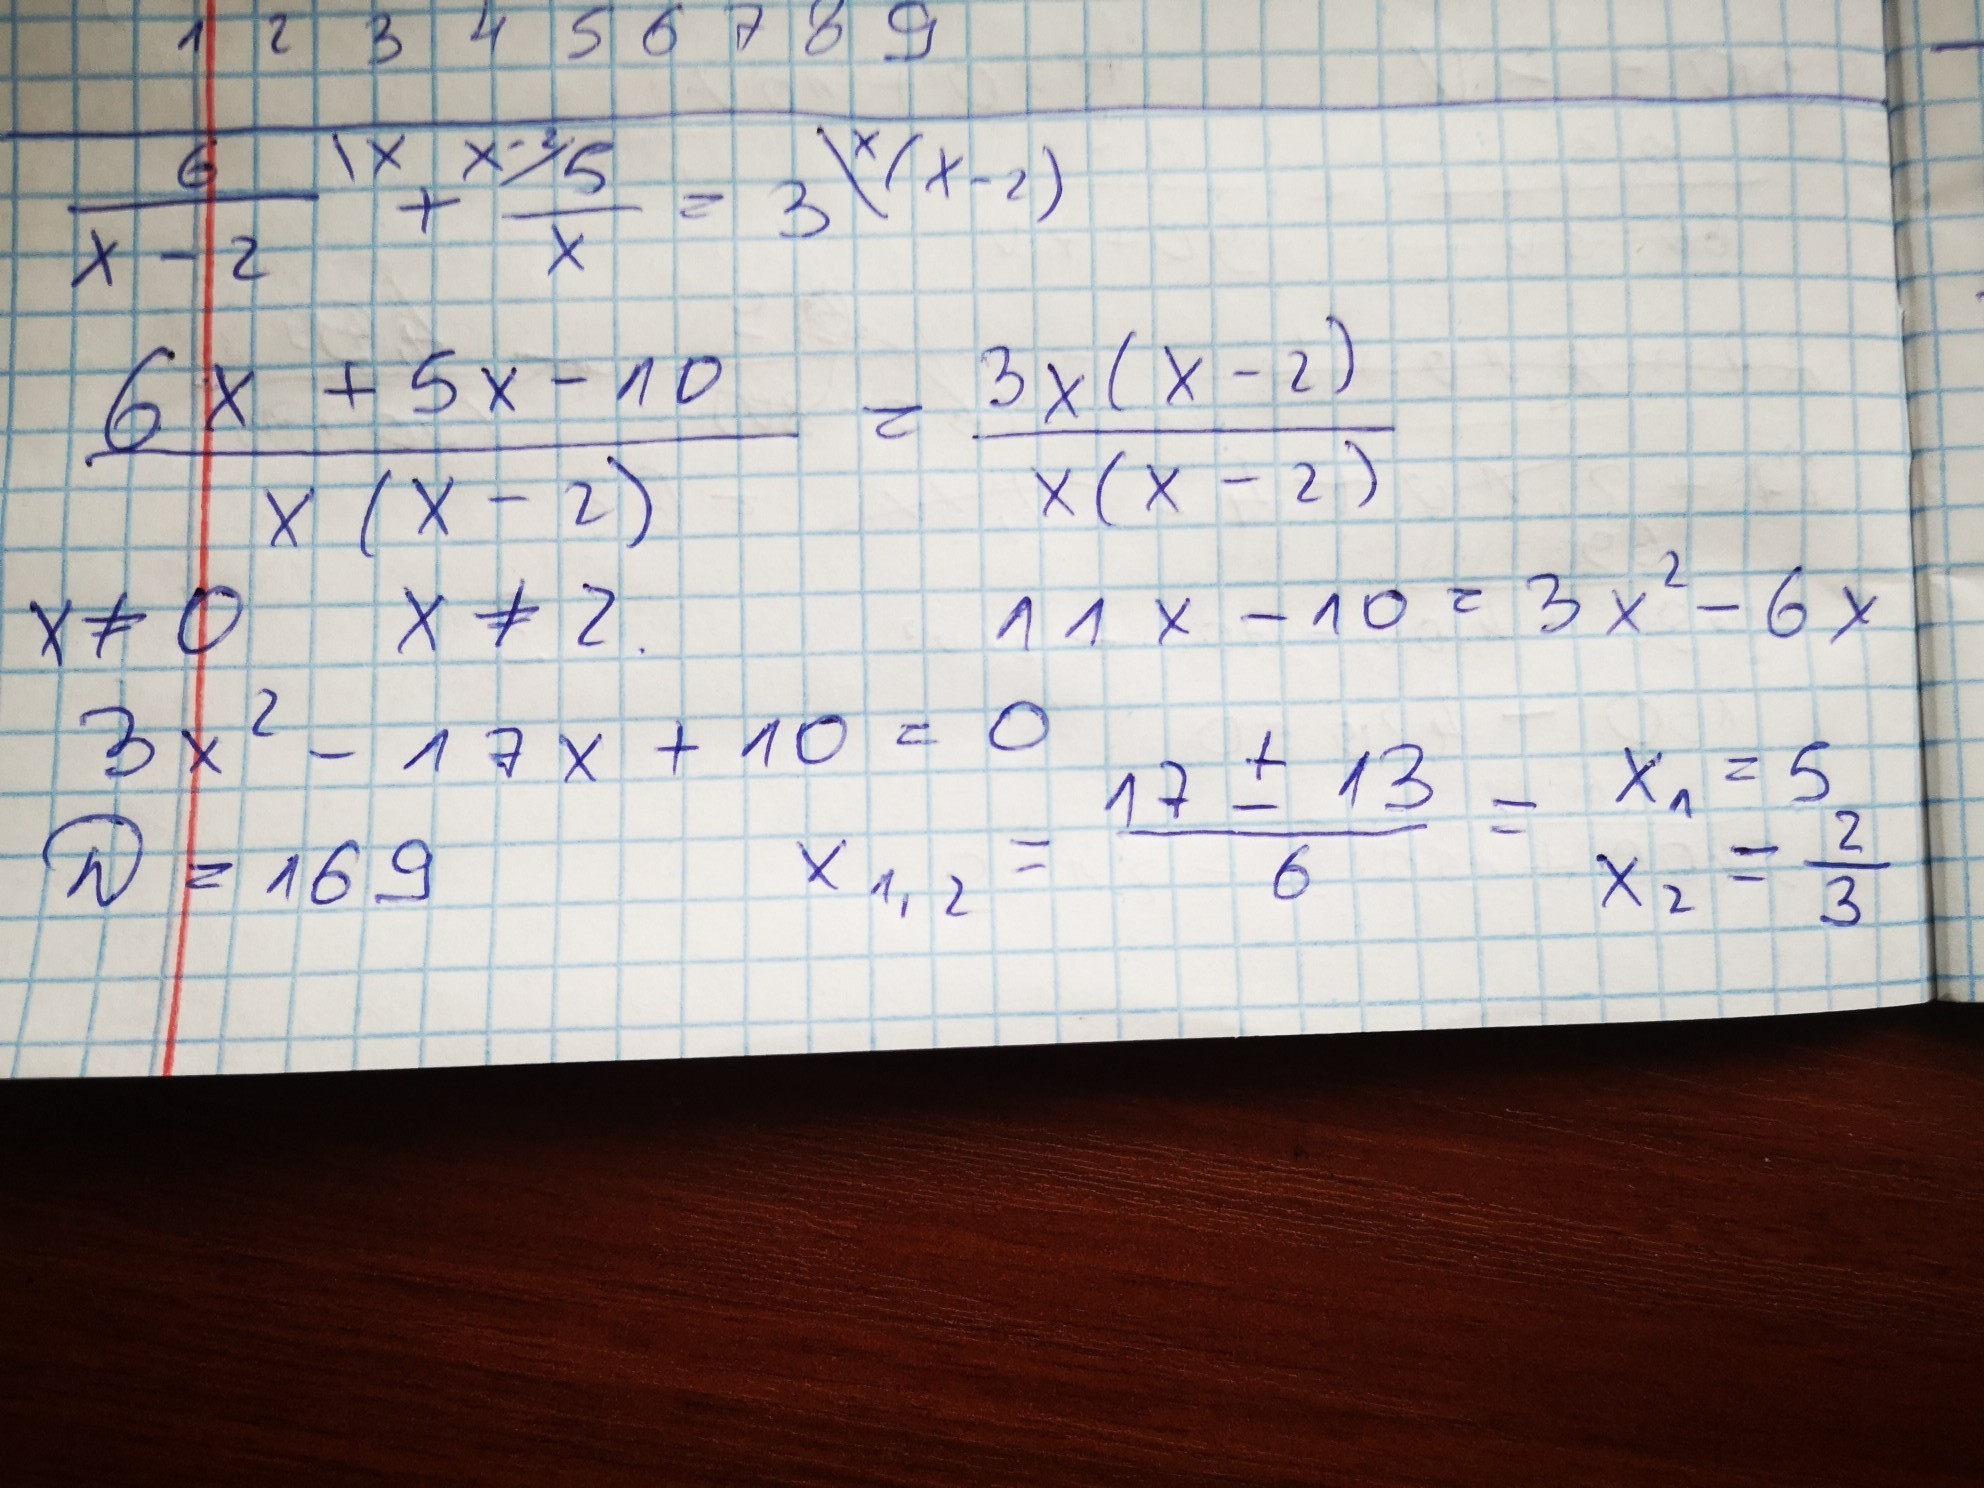 1 2 3 4 5 6 7 8 9
6/(x - 2) \x + x-2/ 5/x = 3 \x(x-2)
(6x + 5x - 10)/(x(x - 2)) = (3x(x - 2))/(x(x - 2))
x ≠ 0 x ≠ 2. 11x - 10 = 3x² - 6x
3x² - 17x + 10 = 0
D = 169 x₁,₂ = (17 ± 13)/6 = x₁ = 5
x₂ = 2/3